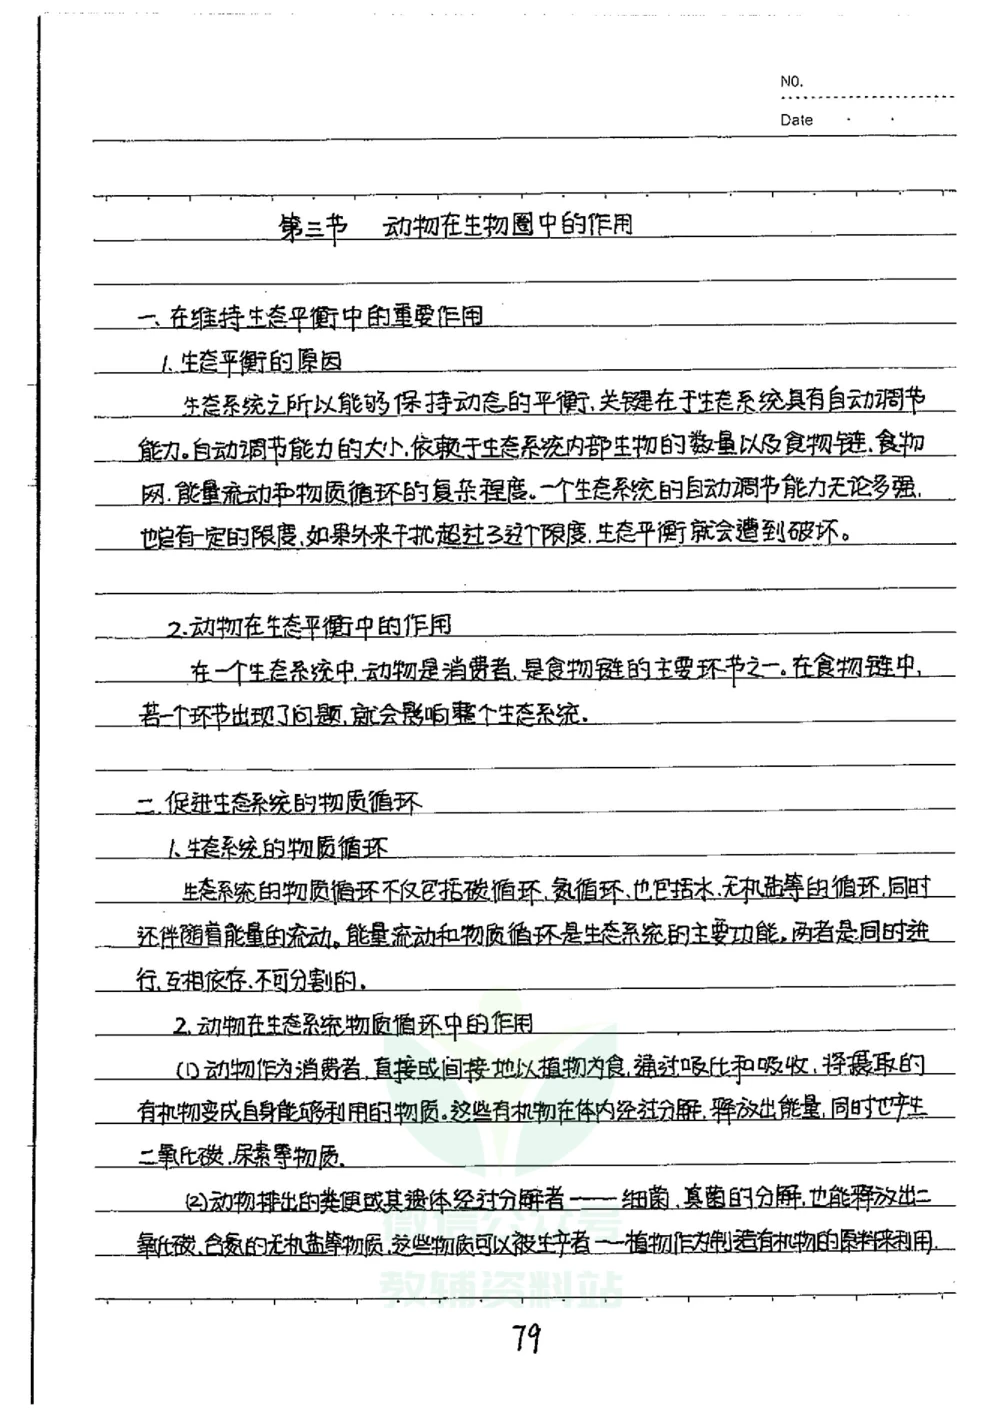 NO.
Date
第三节 动物在生物圈中的作用
一、在维持生态平衡中的重要作用
1.生态平衡的原因
生态系统之所以能够保持动态的平衡,关键在于生态系统具有自动调节
能力。自动调节能力的大小,依赖于生态系统内部生物的数量以及食物链、食物
网、能量流动和物质循环的复杂程度。一个生态系统的自动调节能力无论多强,
也有一定的限度,如果外来干扰超过了这个限度,生态平衡就会遭到破坏。
2.动物在生态平衡中的作用
在一个生态系统中,动物是消费者,是食物链的主要环节之一。在食物链中,
若一个环节出现了问题,就会影响整个生态系统.
二.促进生态系统的物质循环
1.生态系统的物质循环
生态系统的物质循环不仅包括碳循环、氮循环,也包括水、无机盐等的循环,同时
还伴随着能量的流动。能量流动和物质循环是生态系统的主要功能,两者是同时进
行,互相依存,不可分割的。
2.动物在生态系统物质循环中的作用
(1)动物作为消费者,直接或间接地以植物为食,通过吸化和吸收,将摄取的
有机物变成自身能够利用的物质。这些有机物在体内经过分解,释放出能量,同时也产生
二氧化碳、尿素等物质.
(2)动物排出的粪便或其遗体经过分解者——细菌、真菌的分解,也能释放出二
氧化碳、含氮的无机盐等物质,这些物质可以被生产者——植物作为制造有机物的原料来利用.
微信公众号
教辅资料站
79